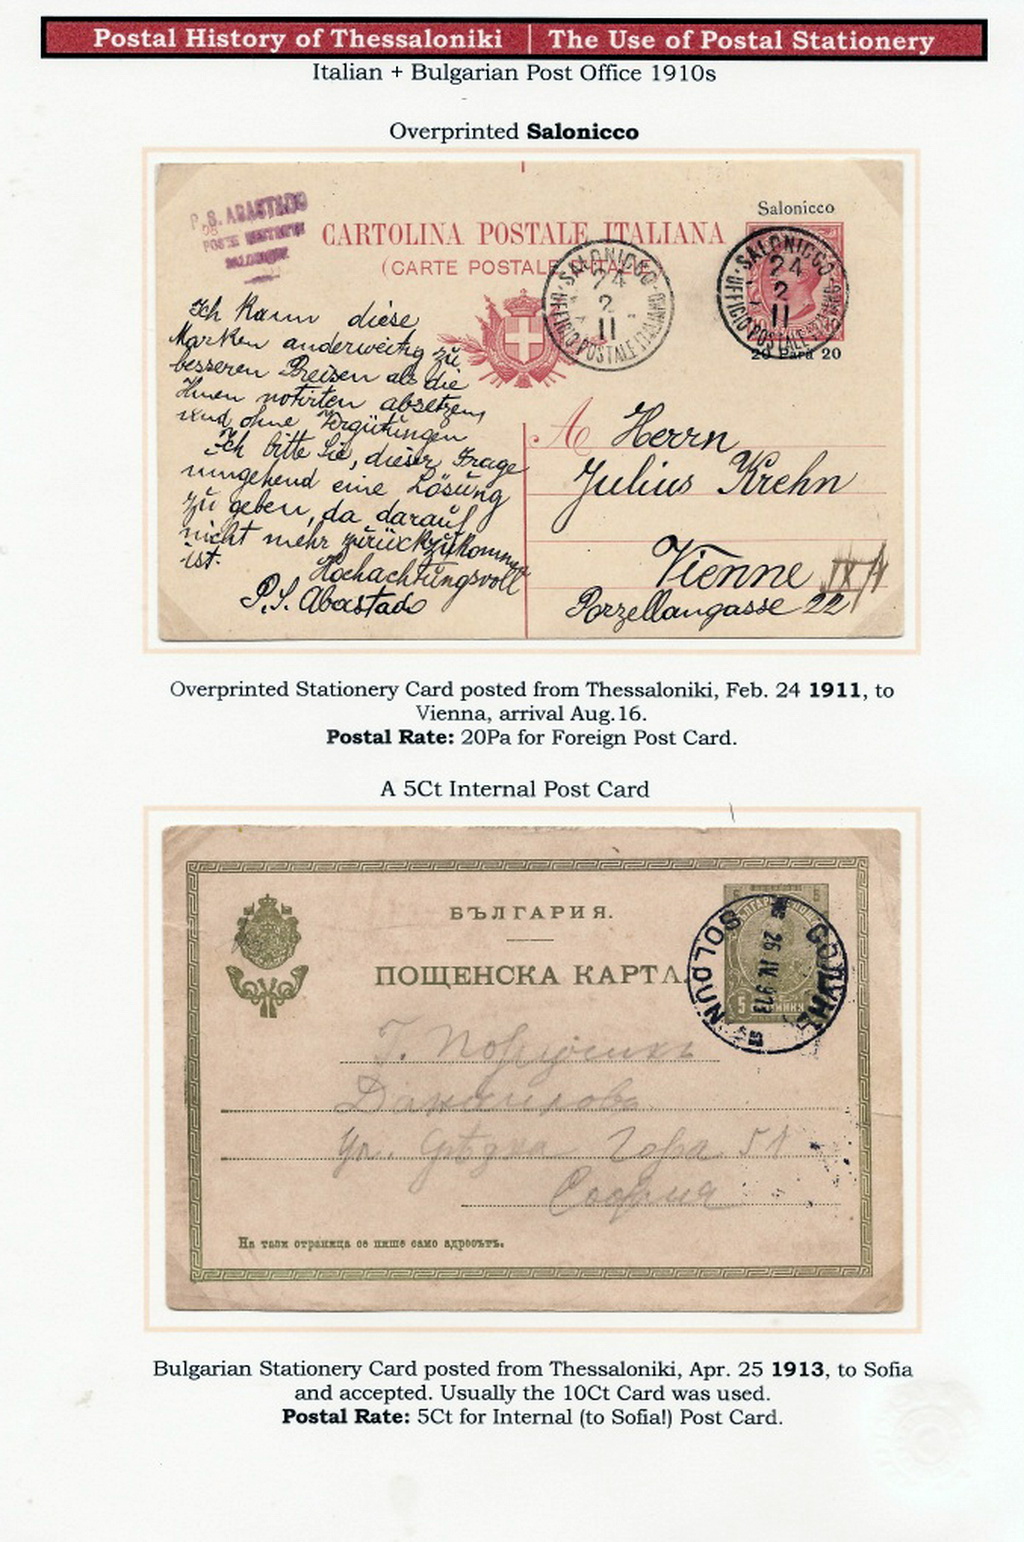 Postal History of Thessaloniki | The Use of Postal Stationery
Italian + Bulgarian Post Office 1910s
Overprinted Salonicco
P. S. ABASTADO
SALONIQUE
Salonicco
CARTOLINA POSTALE ITALIANA
(CARTE POSTALE D'ITALIE)
SALONICCO
24
2
11
UFFICIO POSTALE ITALIANO
SALONICCO
24
2
11
UFFICIO POSTALE ITALIANO
20 Para 20
Ich kann diese
Marken anderweitig zu
besseren Preisen als die
Ihnen notirten absetzen,
und ohne Vergütungen
Ich bitte Sie, dieser Frage
umgehend eine Lösung
zu geben, da darauf
nicht mehr zurückzukommen
ist.
Hochachtungsvoll
P. S. Abastado
A Herrn
Julius Krehn
Vienne IX/1
Porzellangasse 22
Overprinted Stationery Card posted from Thessaloniki, Feb. 24 1911, to
Vienna, arrival Aug.16.
Postal Rate: 20Pa for Foreign Post Card.
A 5Ct Internal Post Card
БЪЛГАРИЯ.
ПОЩЕНСКА КАРТА.
СОЛУНЪ
SOLOUN
5 5
5
Г.
ул. Срѣдна Гора 51
София
На тази страница се пише само адресътъ.
Bulgarian Stationery Card posted from Thessaloniki, Apr. 25 1913, to Sofia
and accepted. Usually the 10Ct Card was used.
Postal Rate: 5Ct for Internal (to Sofia!) Post Card.